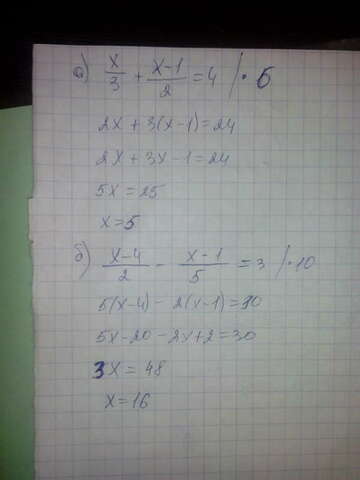 а) x/3 + x-1/2 = 4 /·6
2x + 3(x-1) = 24
2x + 3x - 1 = 24
5x = 25
x = 5
б) x-4/2 - x-1/5 = 3 /·10
5(x-4) - 2(x-1) = 30
5x - 20 - 2x + 2 = 30
3x = 48
x = 16